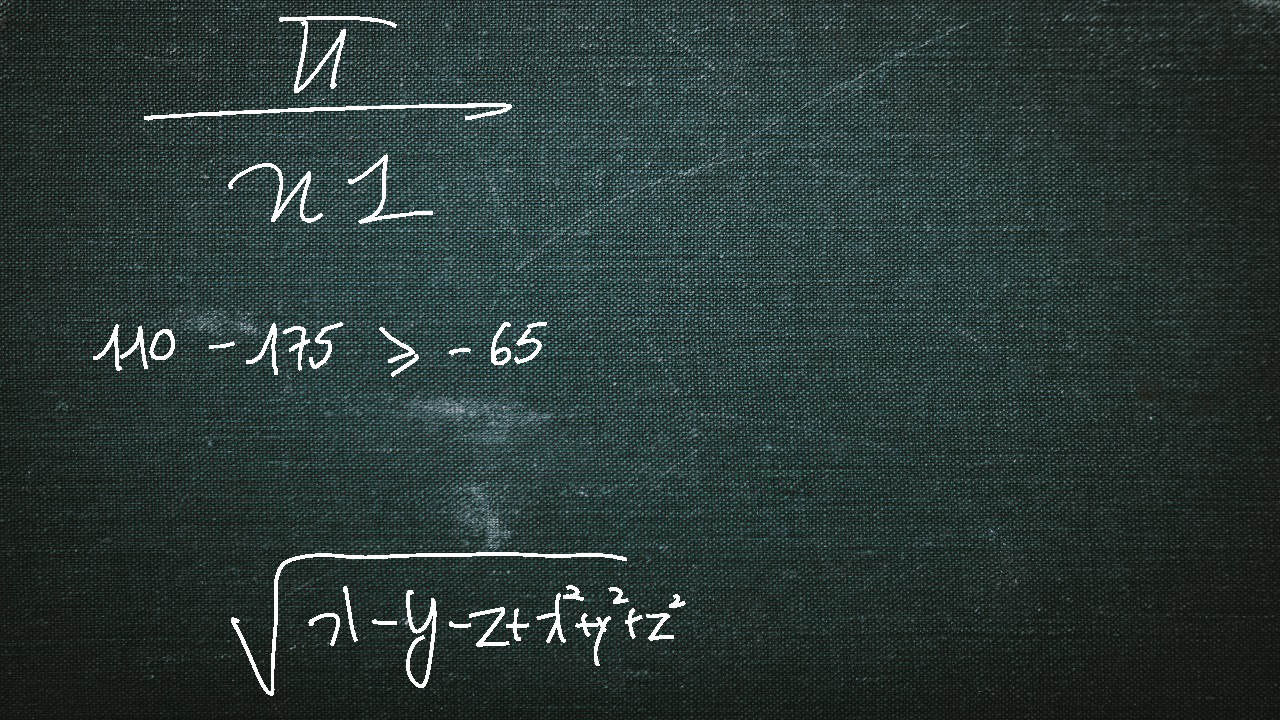 π
x 1
110 - 175 ⩾ - 65
√x - y - z + x² + y² + z²